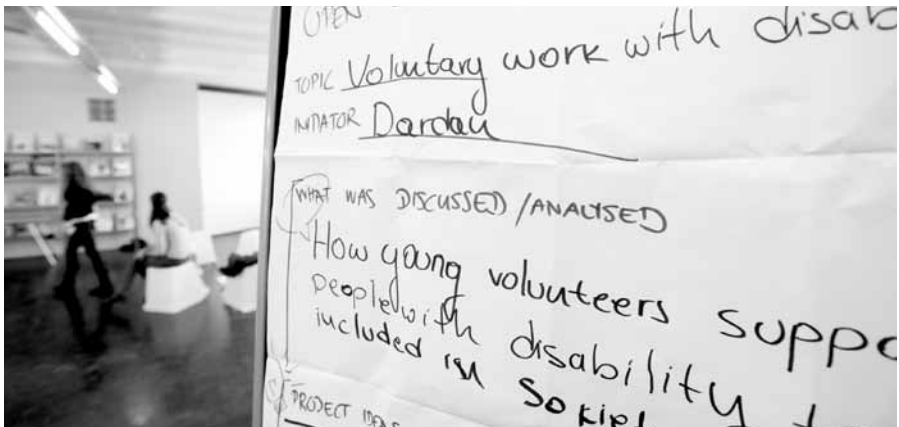 OPEN
TOPIC Voluntary work with disab
INITIATOR Dardan
WHAT WAS DISCUSSED / ANALYSED
How young volunteers suppo
people with disability to
included in Sokiet
PROJECT IDEAS